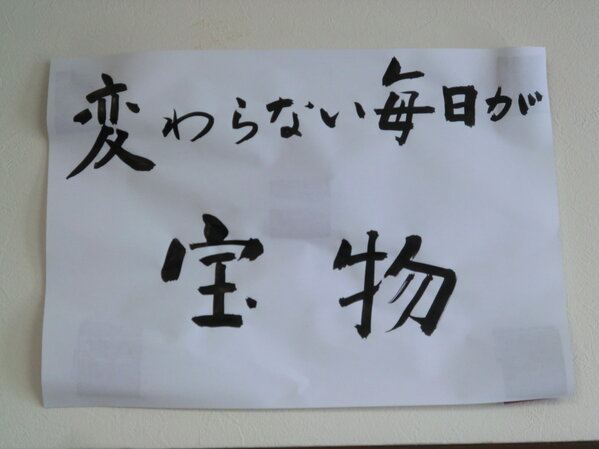 変わらない毎日が
宝物